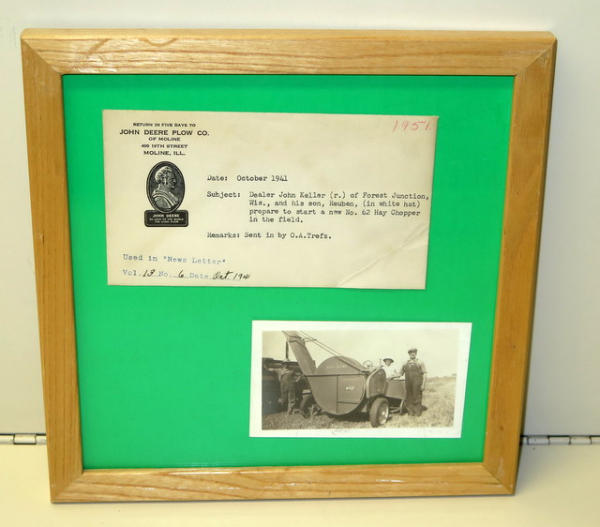 RETURN IN FIVE DAYS TO
JOHN DEERE PLOW CO.
OF MOLINE
400 19TH STREET
MOLINE, ILL.
1951
JOHN DEERE
HE GAVE TO THE WORLD
THE STEEL PLOW
Date: October 1941
Subject: Dealer John Keller (r.) of Forest Junction,
Wis., and his son, Reuben, (in white hat)
prepare to start a new No. 62 Hay Chopper
in the field.
Remarks: Sent in by O.A.Trefz.
Used in "News Letter"
Vol. 13 No. 6 Date Oct 194